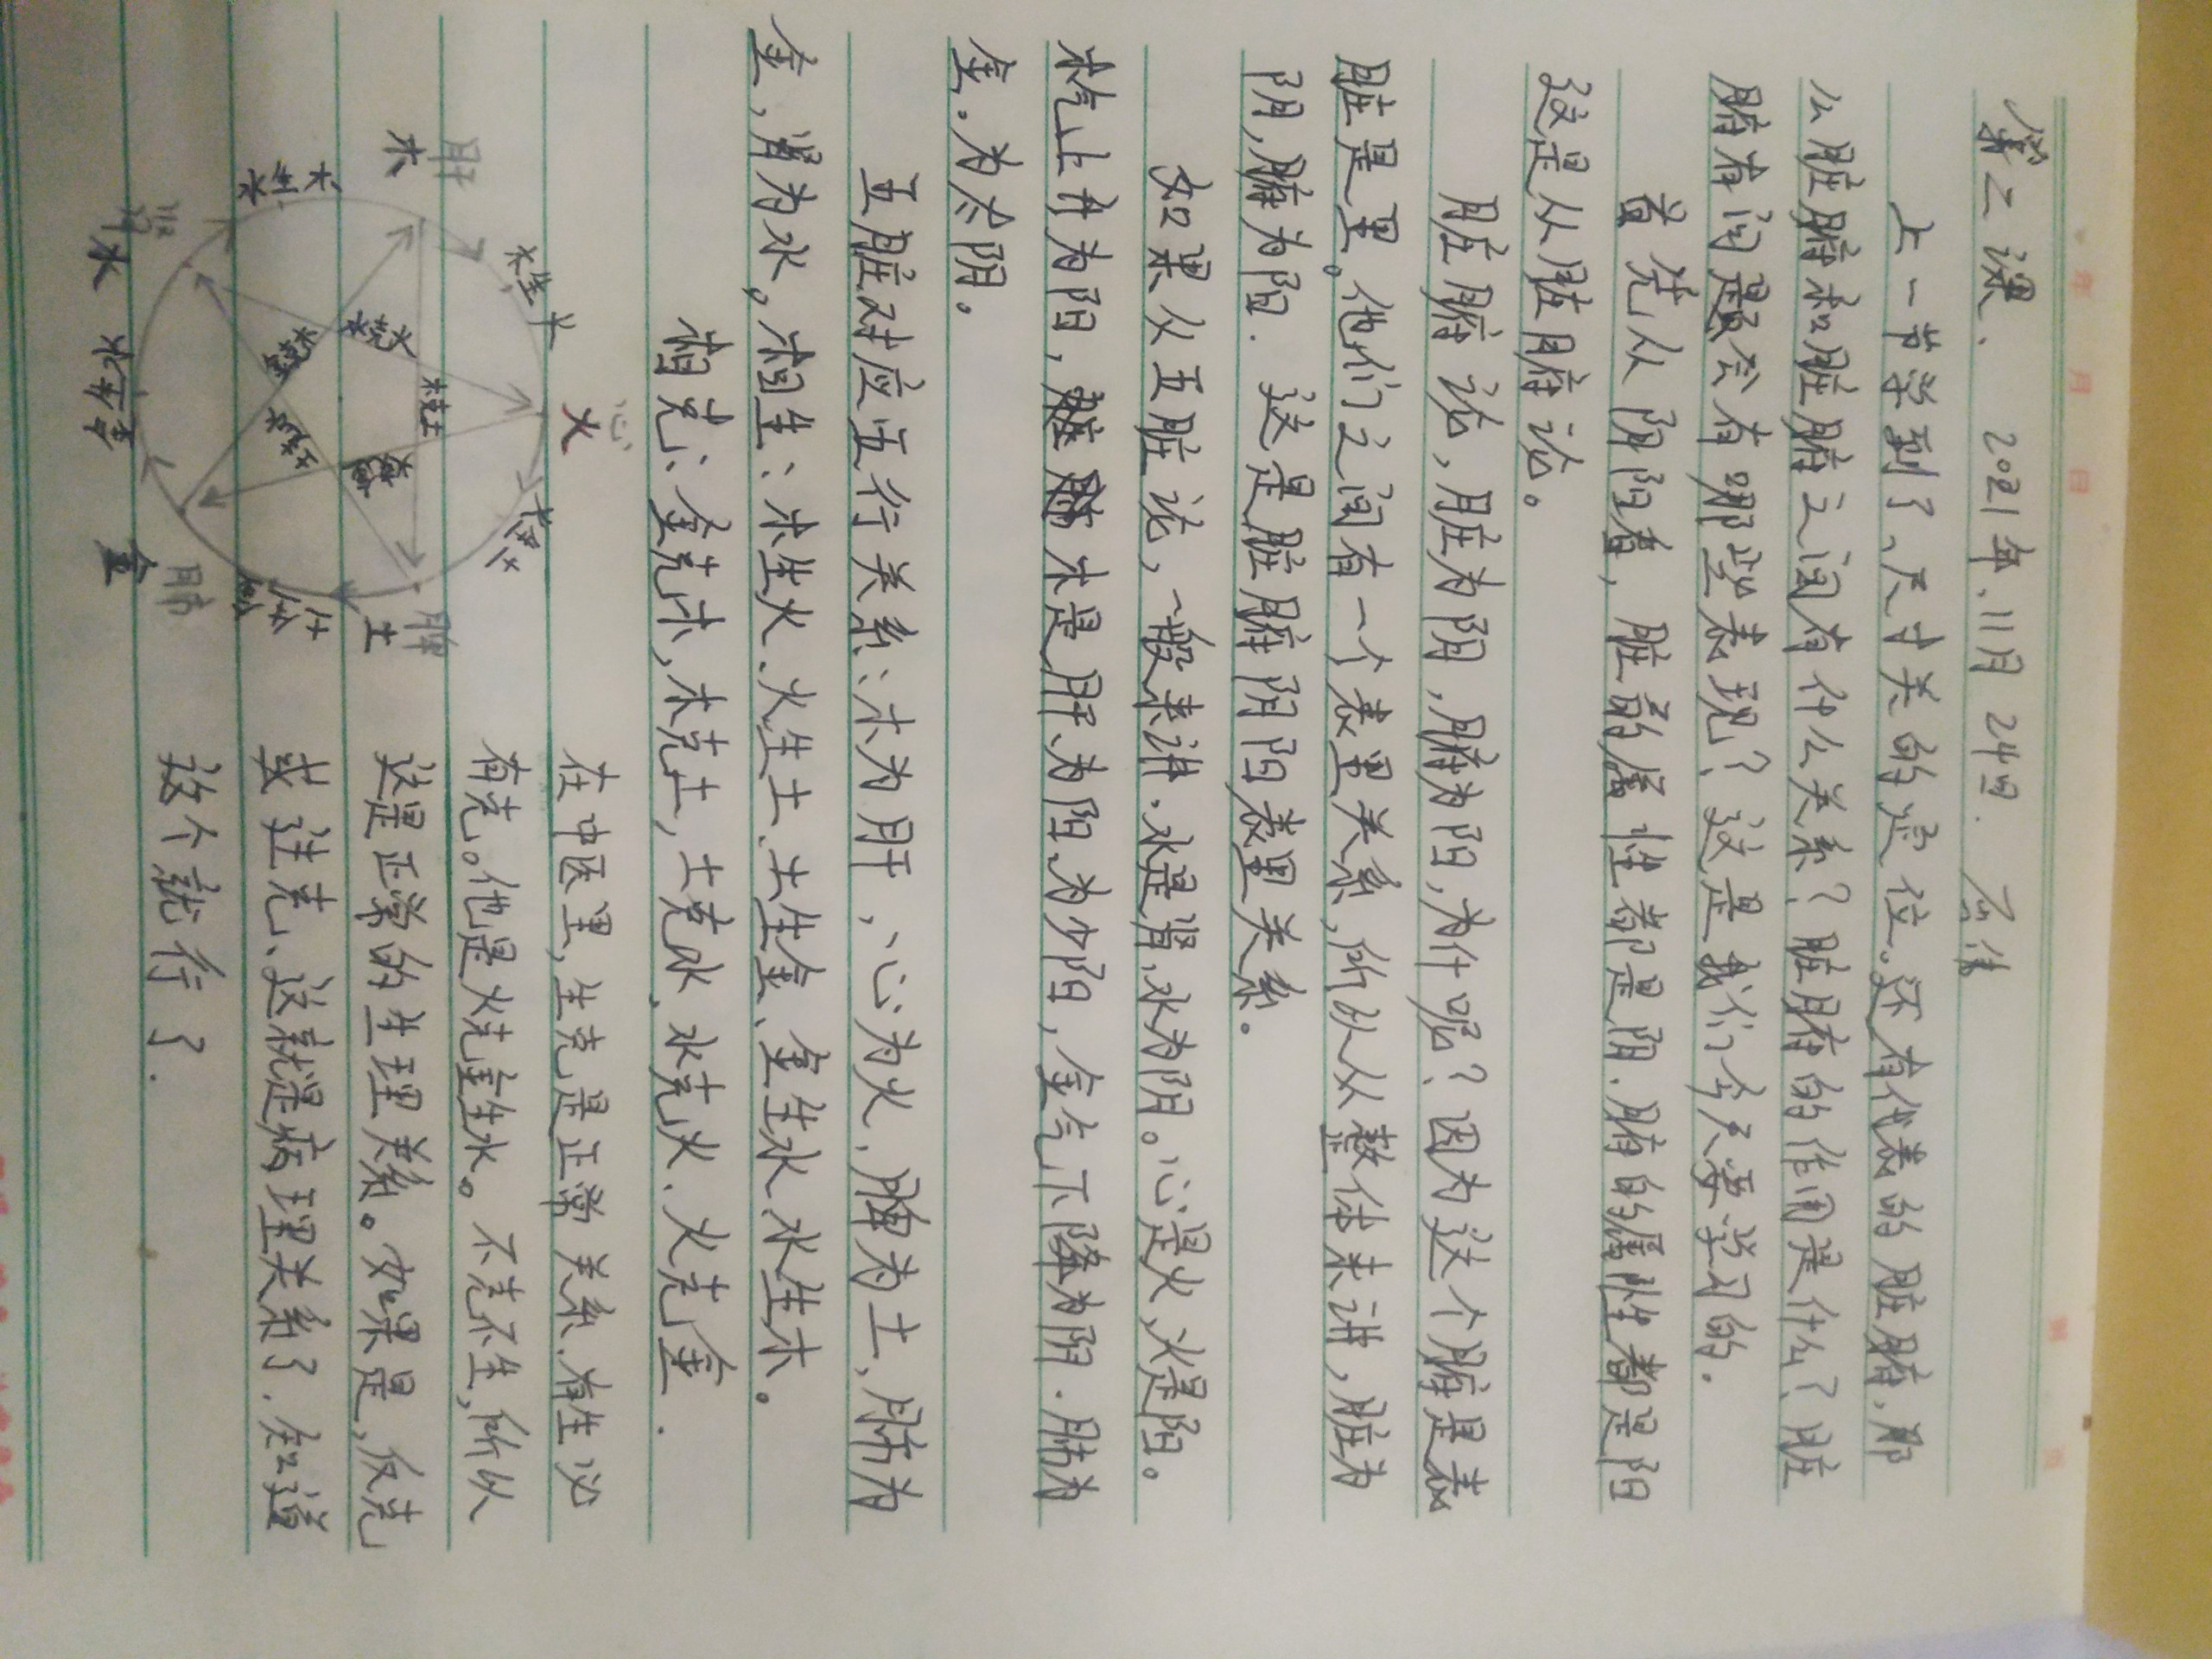 年 月 日
第二课、 2021年.11月24日.
上一节学到了、尺寸关的定位。还有代表的脏腑.那
么脏腑和脏腑之间有什么关系?脏腑的作用是什么?脏
腑有问题会有哪些表现?这是我们今天要学习的.
首先从阴阳看,脏的属性都是阴.腑的属性都是阳
这是从脏腑论。
脏腑论,脏为阴,腑为阳,为什呢?因为这个腑是表
脏是里。他们之间有一个表里关系,所以从整体来讲,脏为
阴,腑为阳.这是脏腑阴阳表里关系。
如果从五脏论,一般来讲.水是肾,水为阴。心是火,火是阳。
木气上升为阳,木是肝为阳为少阳,金气下降为阴.肺为
金.为少阴。
五脏对应五行关系:木为肝,心为火.脾为土,肺为
金,肾为水。相生:木生火.火生土、土生金、金生水、水生木。
相克:金克木,木克土,土克水、水克火、火克金.
在中医里,生克是正常关系、有生必
有克。他是火克金生水。不克不生,所以
这是正常的生理关系。如果是,反克
或 注克、这就是病理关系了.知道
这个就行了.
心
火
木生火
火生土
肝
木
脾
土
木克土
水克火
水生木
土生金
肾
水
肺
金
金生水